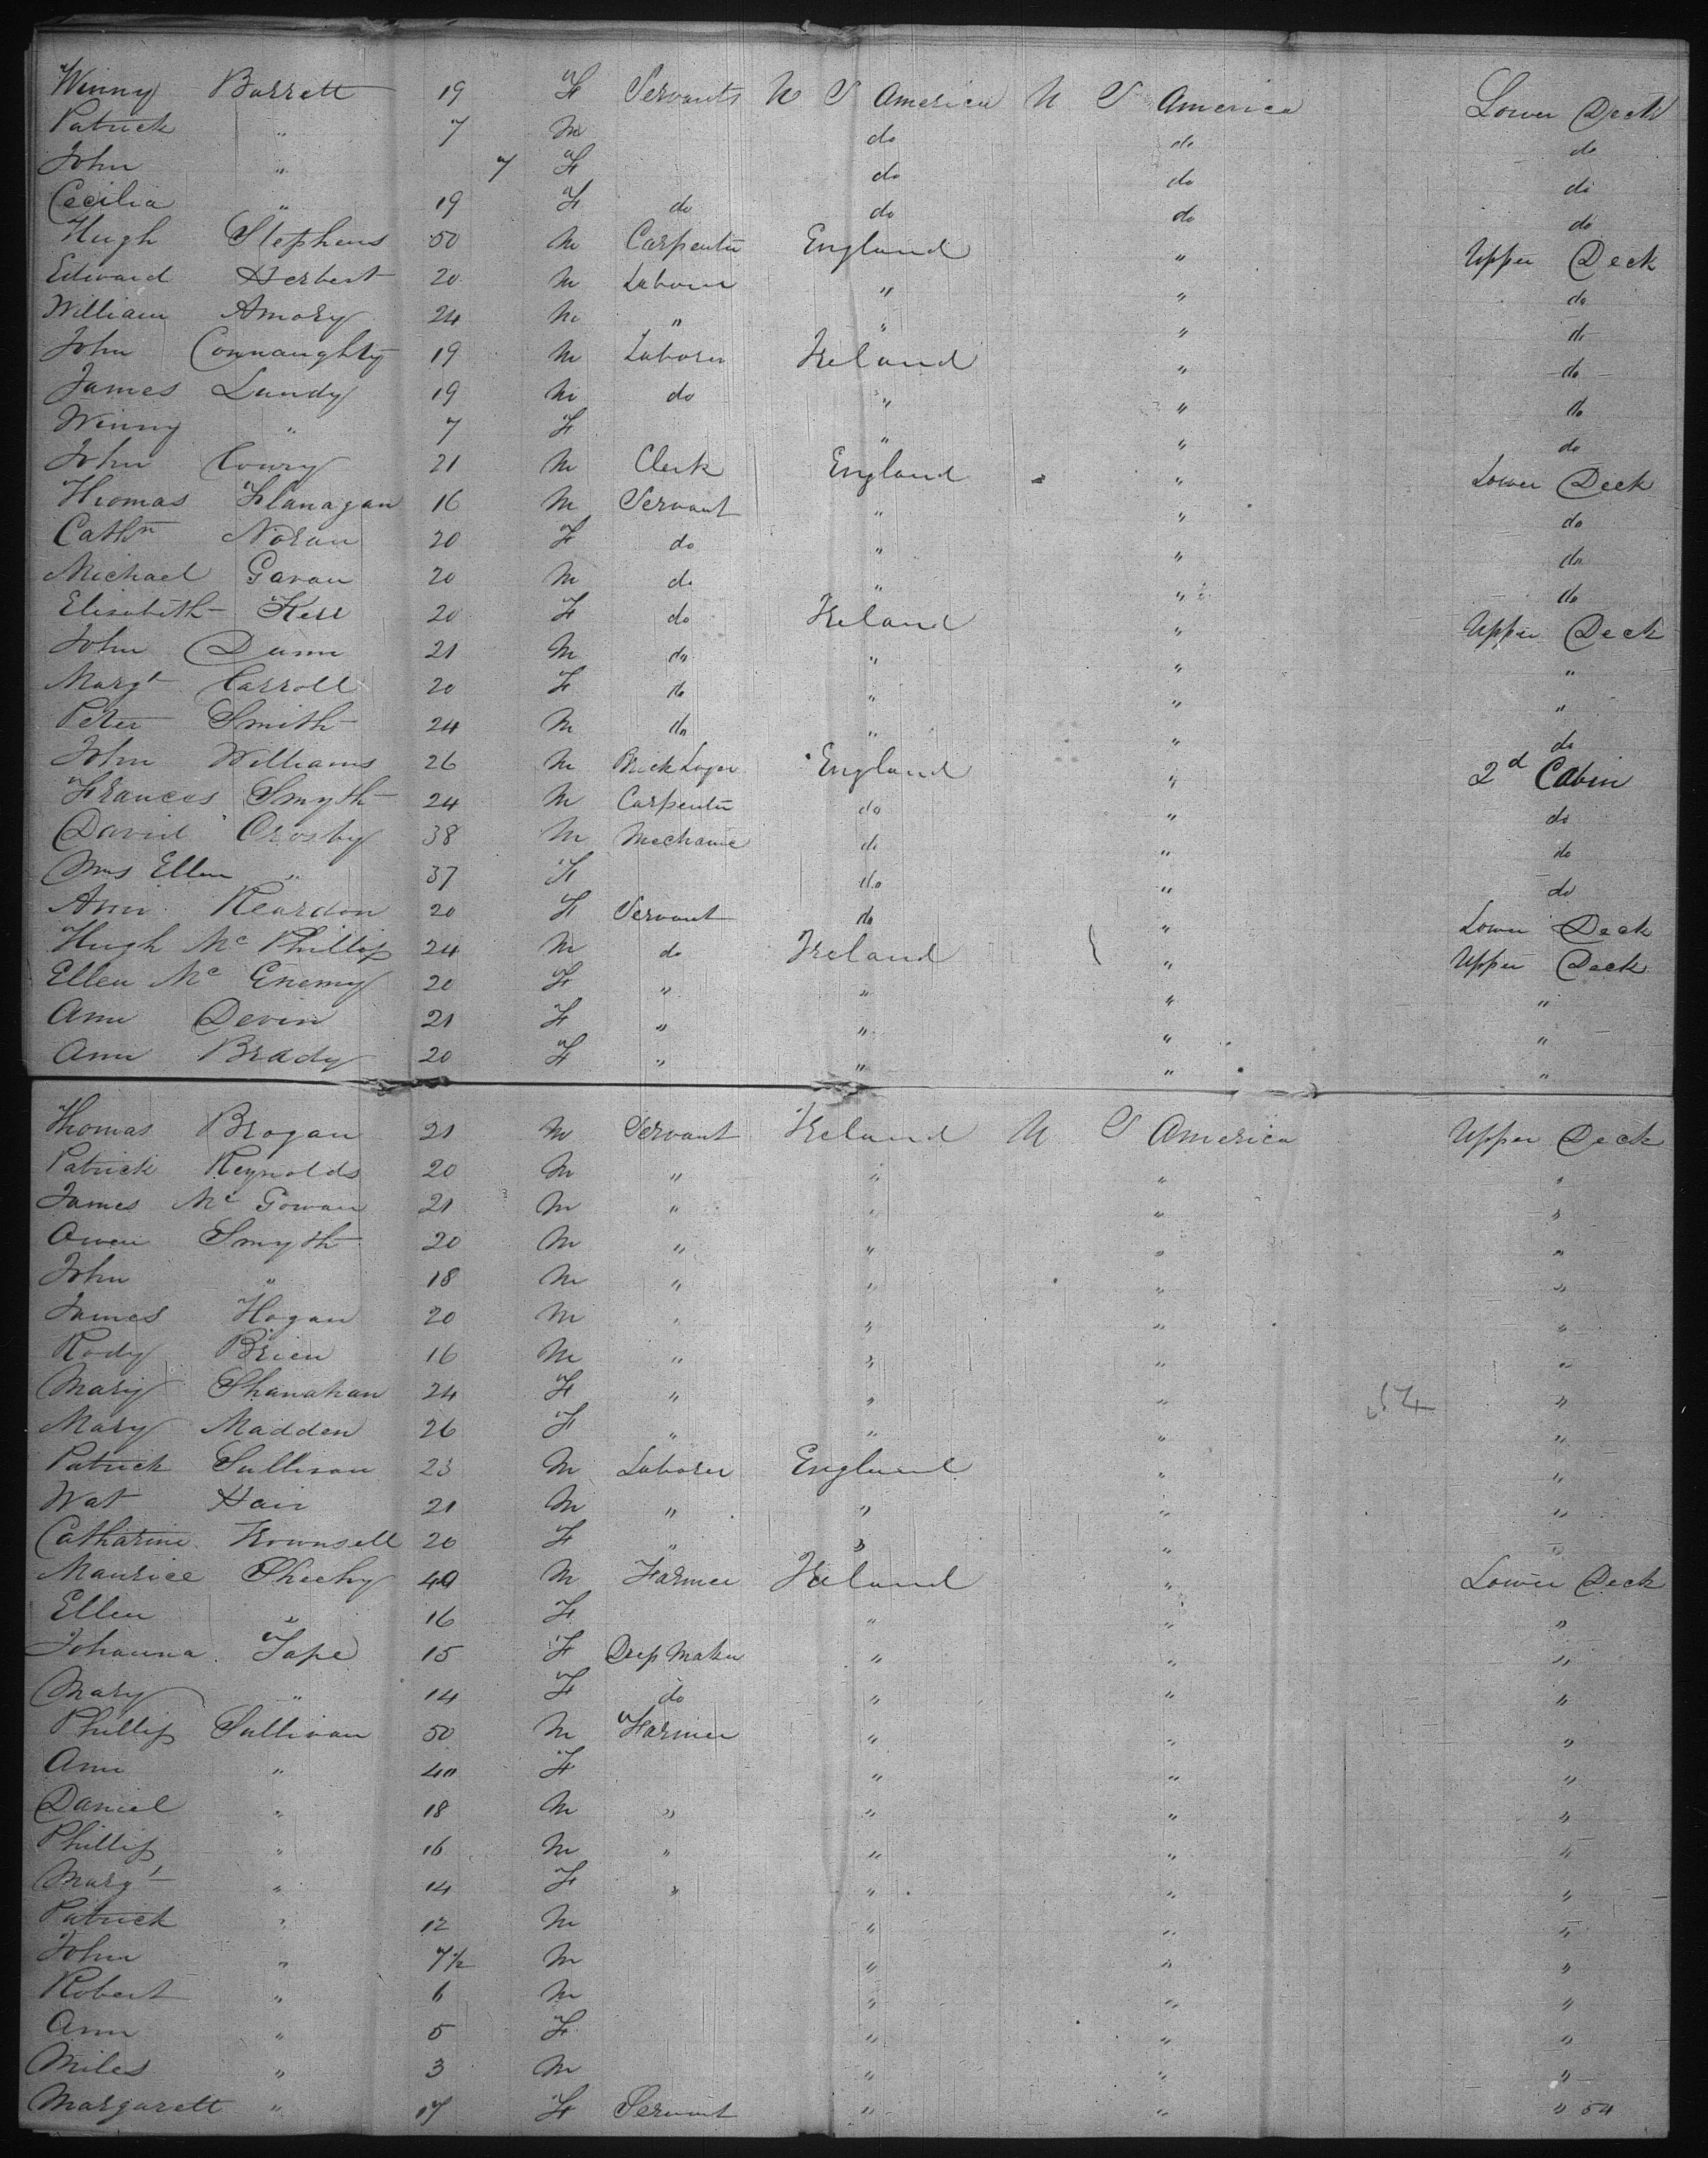 Winny Barrett 19 F Servants U S America U S America Lower Deck
Patrick " 7 M do do do
John " 7 F do do di
Cecilia " 19 F do do do do
Hugh Stephens 50 M Carpenter England " Upper Deck
Edward Herbert 20 M Labourer " " do
William Amory 24 M " " " do
John Connaughty 19 M Laborer Ireland " do
James Lundy 19 M do " " do
Winny " 7 F " " do
John Coury 21 M Clerk England " Lower Deck
Thomas Flanagan 16 M Servant " " do
Cathn Noran 20 F do " " do
Michael Gavan 20 M do " " do
Elisabeth Kerr 20 F do Ireland " Upper Deck
John Dunn 21 M do " " "
Margt Carroll 20 F do " " "
Peter Smith 24 M do " " do
John Williams 26 M Brick Layer England " 2d Cabin
Frances Smyth 24 M Carpenter do " do
David Crosby 38 M Mechanic do " do
Mrs Ellen " 37 F do " do
Ann Reardon 20 F Servant do " Lower Deck
Hugh Mc Phillip 24 M do Ireland " Upper Deck
Ellen Mc Enemy 20 F " " " "
Ann Devin 21 F " " " "
Ann Brady 20 F " " " "
Thomas Brogan 21 M Servant Ireland U S America Upper Deck
Patrick Reynolds 20 M " " " "
James Mc Gowan 21 M " " " "
Owen Smyth 20 M " " " "
John " 18 M " " " "
James Hogan 20 M " " " "
Rody Brien 16 M " " " "
Mary Shanahan 24 F " " " "
Mary Madden 26 F " " " "
Patrick Sullivan 23 M Laborer England " "
Wat Hair 21 M " " " "
Catharine Trownsell 20 F " " " "
Maurice Sheehy 40 M Farmer Ireland " Lower Deck
Ellen " 16 F " " "
Johanna Tape 15 F Dress Maker " " "
Mary " 14 F do " " "
Phillip Sullivan 50 M Farmer " " "
Ann " 40 F " " "
Daniel " 18 M " " " "
Phillip " 16 M " " " "
Margt " 14 F " " " "
Patrick " 12 M " " "
John " 7½ M " " "
Robert " 6 M " " "
Ann " 5 F " " "
Miles " 3 M " " "
Margarett " 17 F Servant " " " 54